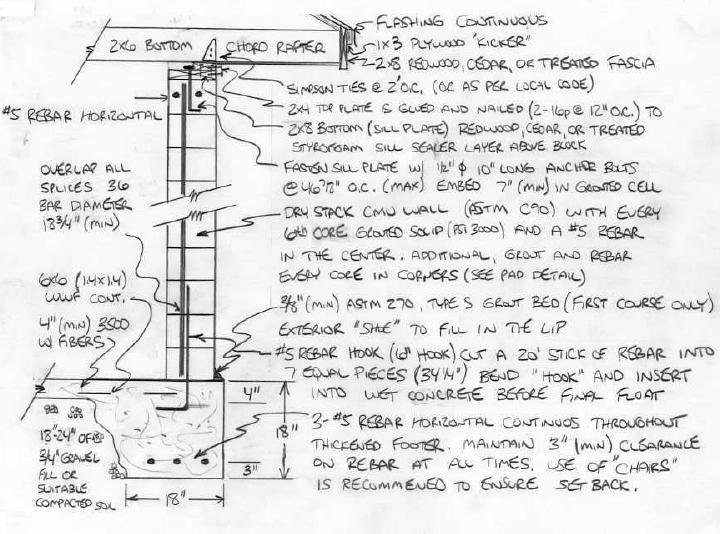 FLASHING CONTINUOUS
1x3 PLYWOOD "KICKER"
2-2x8 REDWOOD, CEDAR, OR TREATED FASCIA
2x6 BOTTOM CHORD RAFTER
SIMPSON TIES @ 2' O.C. (OR AS PER LOCAL CODE)
2x4 TOP PLATE IS GLUED AND NAILED (2-16p @ 12" O.C.) TO
2x8 BOTTOM (SILL PLATE) REDWOOD, CEDAR, OR TREATED
STYROFOAM SILL SEALER LAYER ABOVE BLOCK
#5 REBAR HORIZONTAL
FASTEN SILL PLATE W/ 1/2" φ 10" LONG ANCHOR BOLTS
O.C. (MAX) EMBED 7" (MIN) IN GROUTED CELL
OVERLAP ALL
SPLICES 36
BAR DIAMETER
18 3/4" (MIN)
DRY STACK CMU WALL (ASTM C90) WITH EVERY
6th CORE GROUTED SOLID (PSI 3000) AND A #5 REBAR
IN THE CENTER. ADDITIONAL, GROUT AND REBAR
EVERY CORE IN CORNERS (SEE PAD DETAIL)
6x6 (1.4x1.4)
WWF CONT.
4" (MIN) 3500
W/ FIBERS
3/8" (MIN) ASTM 270, TYPE S GROUT BED (FIRST COURSE ONLY)
EXTERIOR "SHOE" TO FILL IN THE LIP
#5 REBAR HOOK (6" HOOK) CUT A 20' STICK OF REBAR INTO
7 EQUAL PIECES (34 1/4") BEND "HOOK" AND INSERT
INTO WET CONCRETE BEFORE FINAL FLOAT
4"
18"
3"
18"
3-#5 REBAR HORIZONTAL CONTINUOS THROUGHOUT
THICKENED FOOTER. MAINTAIN 3" (MIN) CLEARANCE
ON REBAR AT ALL TIMES. USE OF "CHAIRS"
IS RECOMMENED TO ENSURE SET BACK.
18"-24" OF
3/4" GRAVEL
FILL OR
SUITABLE
COMPACTED SOIL